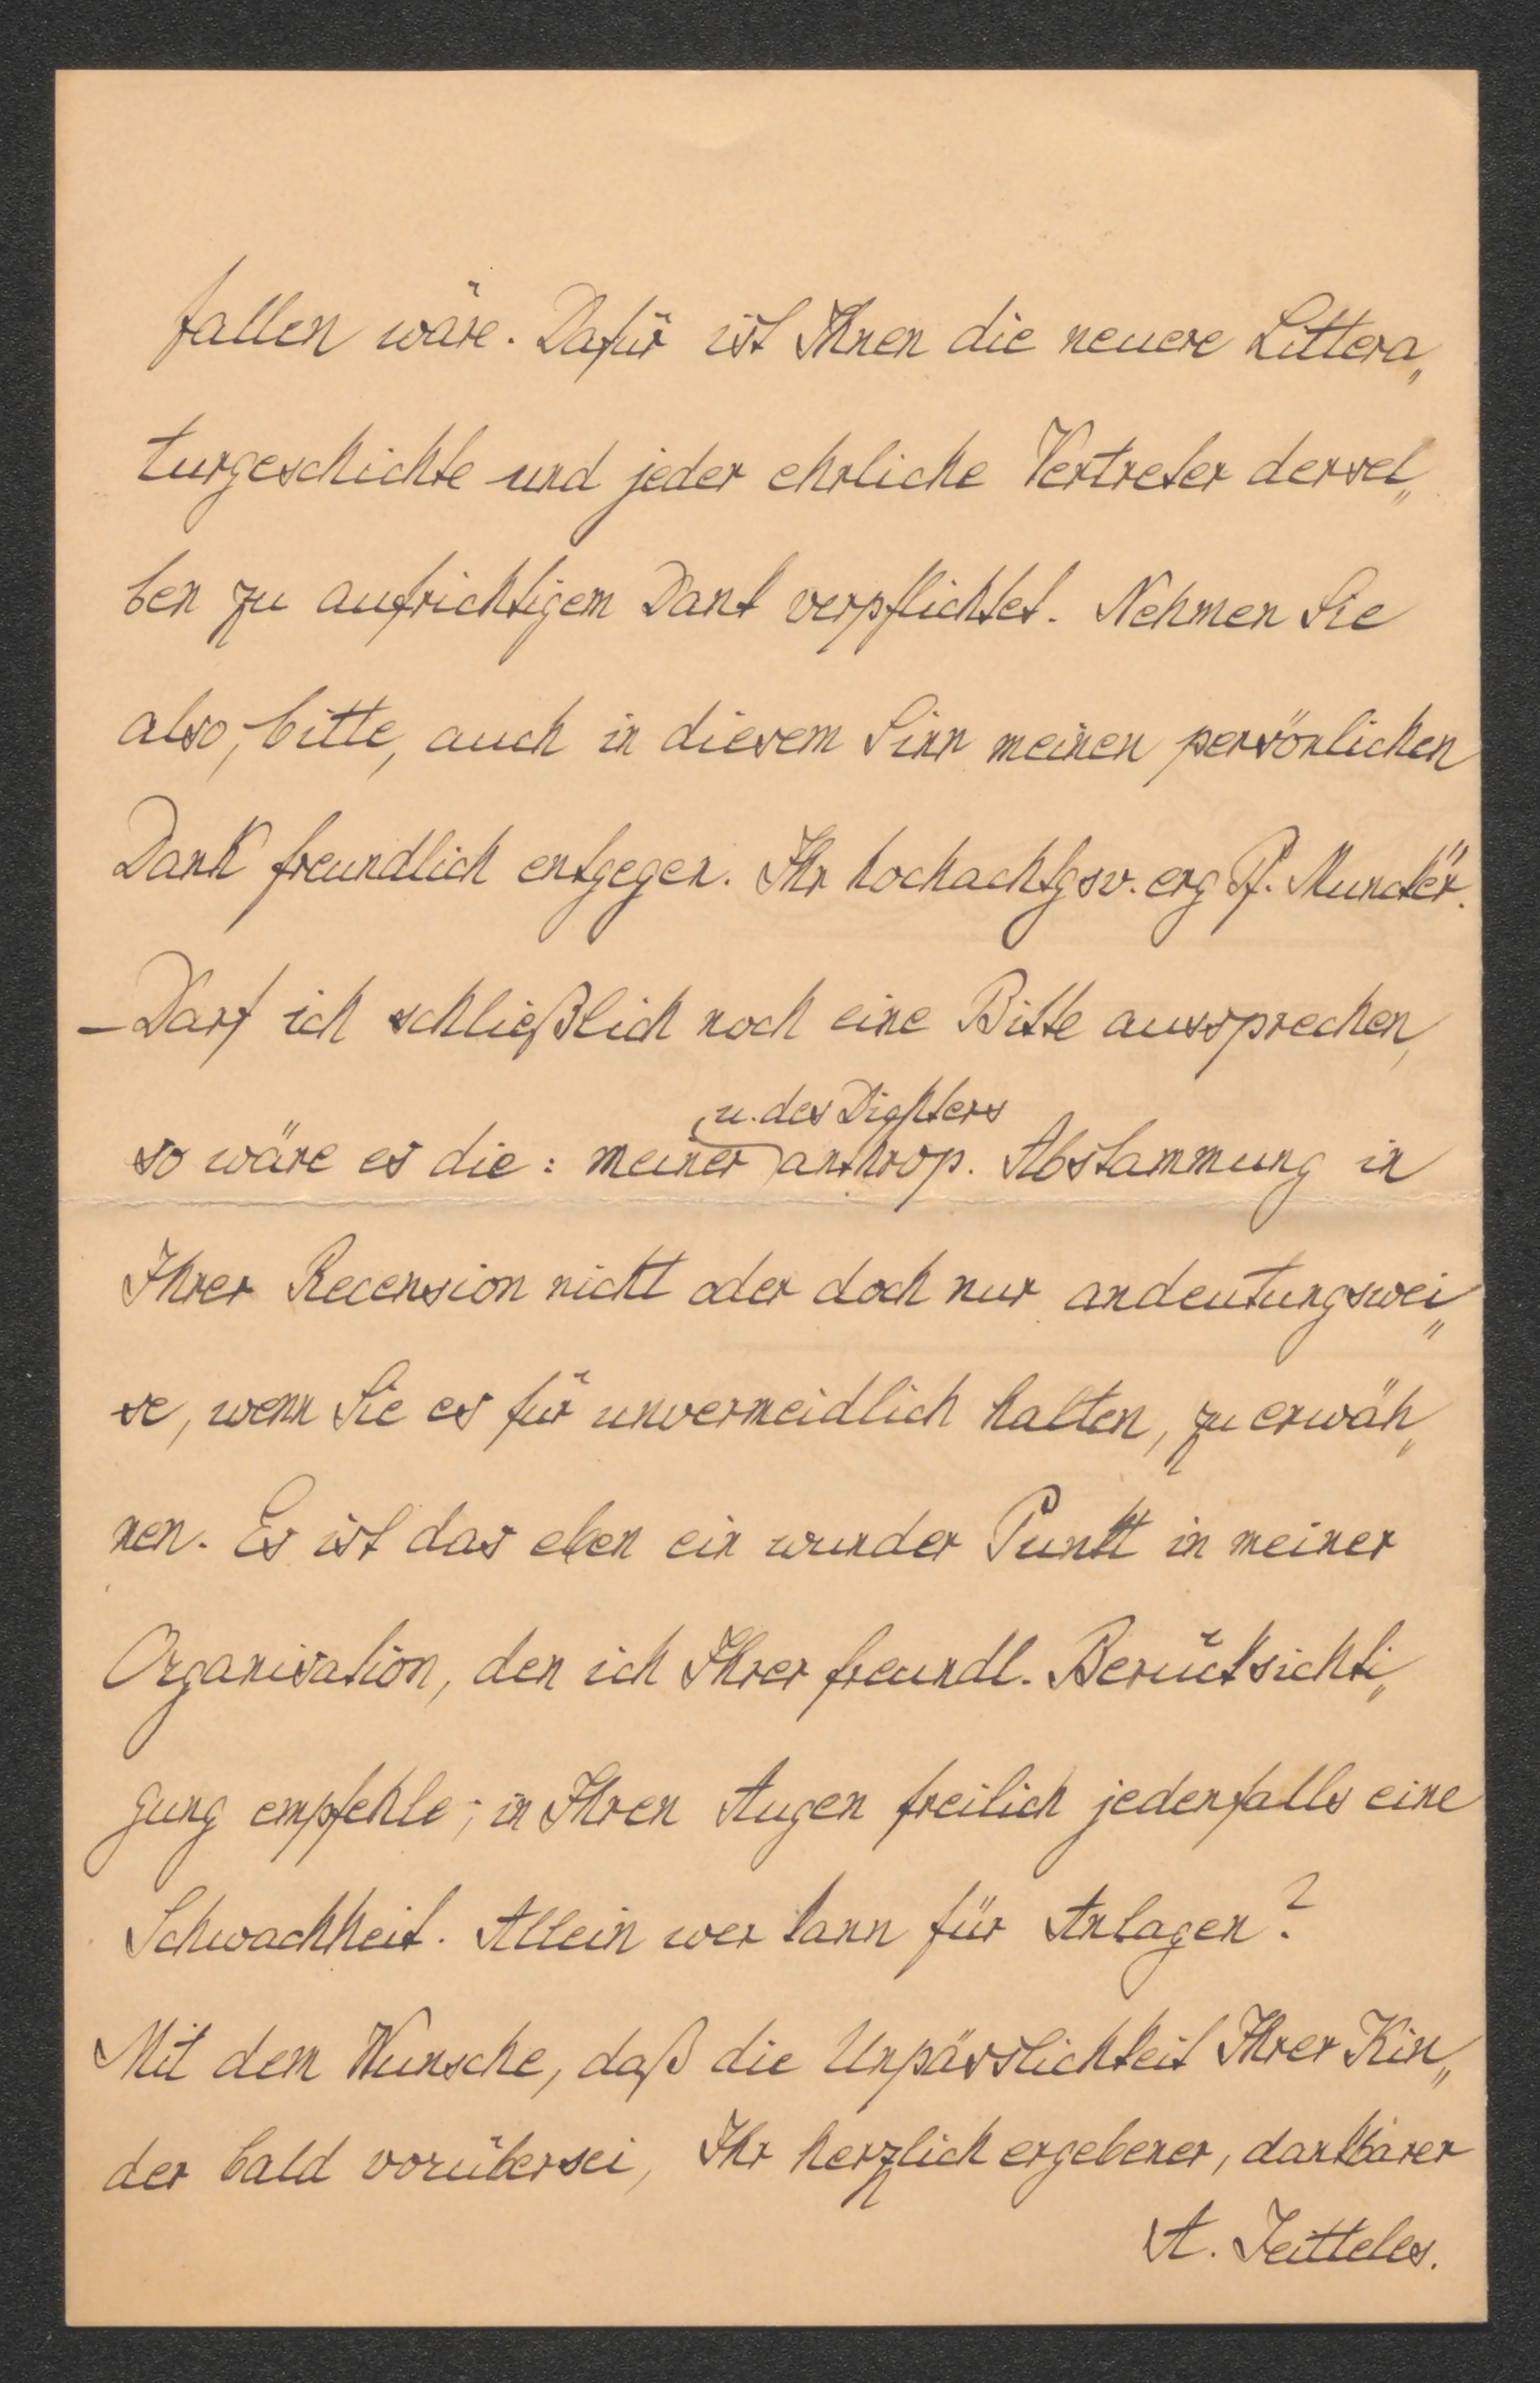 fallen wäre. Dafür ist Ihnen die neuere Littera„
turgeschichte und jeder ehrliche Vertreter dersel„
ben zu aufrichtigem Dank verpflichtet. Nehmen Sie
also, bitte, auch in diesem Sinn meinen persönlichen
Dank freundlich entgegen. Ihr hochachtgsv. erg Pf. Muncker."
– Darf ich schließlich noch eine Bitte aussprechen,
u. des Dichters
so wäre es die: meiner anthrop. Abstammung in
Ihrer Recension nicht oder doch nur andeutungswei„
se, wenn Sie es für unvermeidlich halten, zu erwäh„
nen. Es ist das eben ein wunder Punkt in meiner
Organisation, den ich Ihrer freundl. Berücksichti„
gung empfehle; in Ihren Augen freilich jedenfalls eine
Schwachheit. Allein wer kann für Anlagen?
Mit dem Wunsche, daß die Unpässlichkeit Ihrer Kin„
der bald vorübersei, Ihr herzlich ergebener, dankbarer
A. Jeitteles.